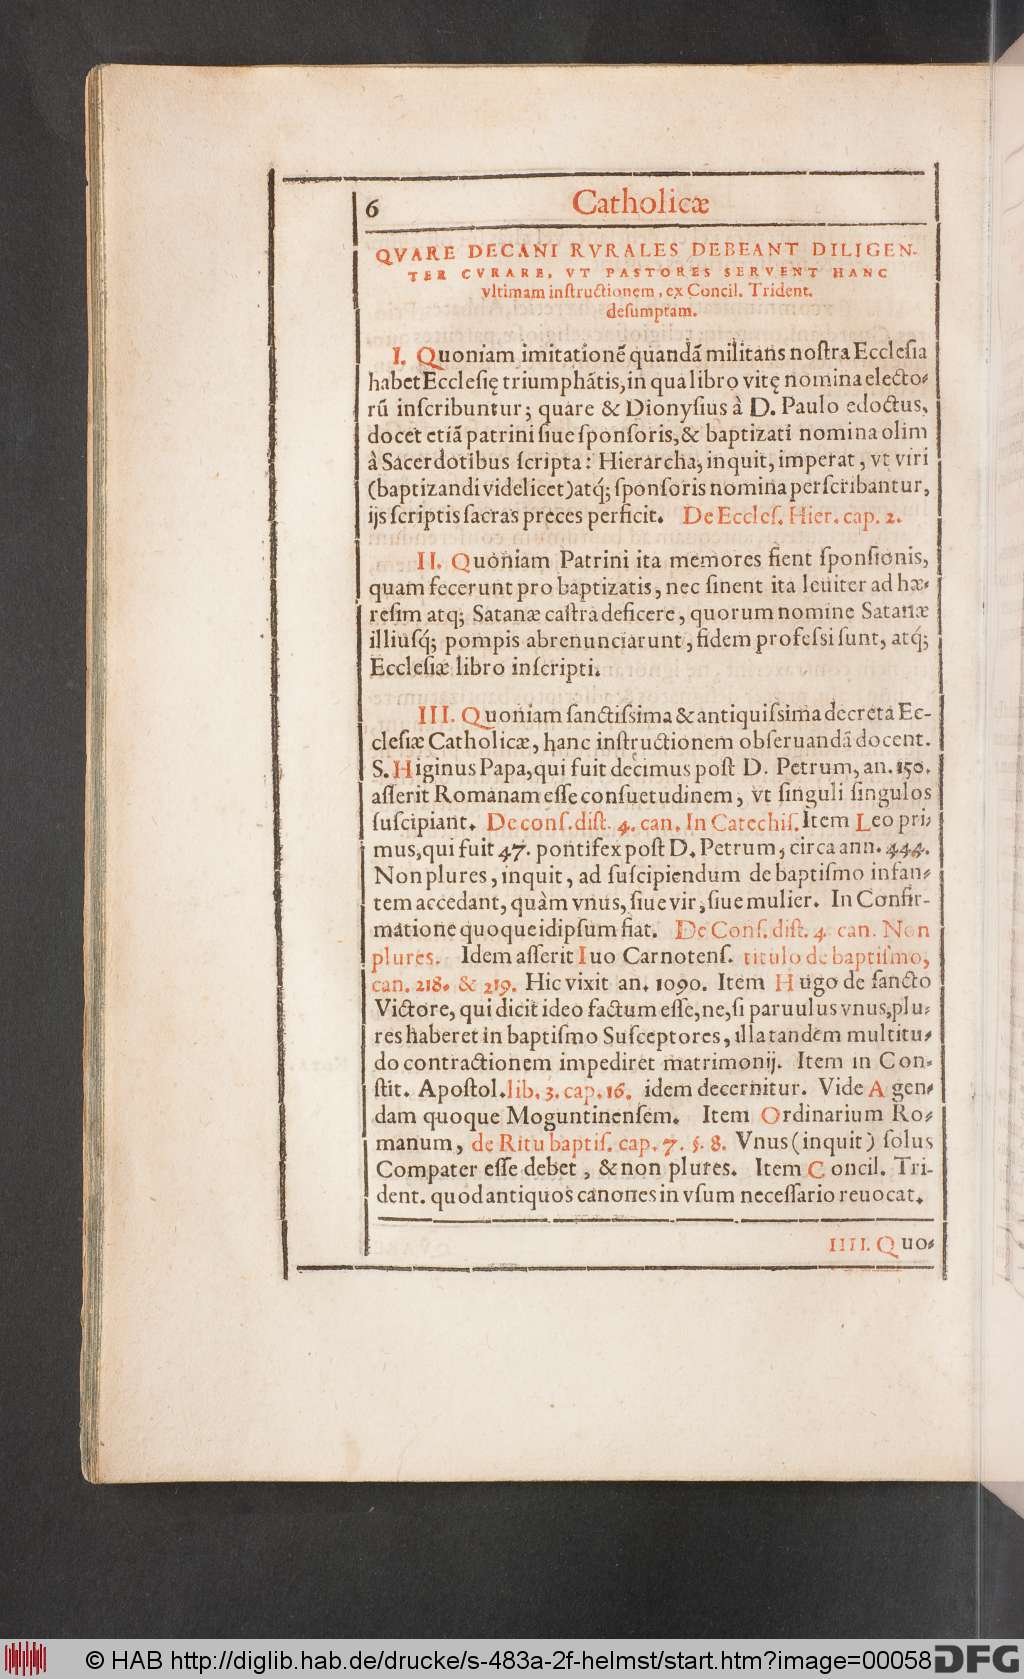 6 Catholicæ
QVARE DECANI RVRALES DEBEANT DILIGEN-
TER CVRARE, VT PASTORES SERVENT HANC
vltimam inſtructionem, ex Concil. Trident.
deſumptam.
I. Quoniam imitationẽ quandã militans noſtra Eccleſia
habet Eccleſię triumphãtis, in qua libro vitę nomina electo-
rũ inſcribuntur; quare & Dionyſius à D. Paulo edoctus,
docet etiã patrini ſiue ſponſoris, & baptizati nomina olim
à Sacerdotibus ſcripta: Hierarcha, inquit, imperat, vt viri
(baptizandi videlicet) atq́; ſponſoris nomina perſcribantur,
ijs ſcriptis ſacras preces perficit. De Eccleſ. Hier. cap. 2.
II. Quoniam Patrini ita memores fient ſponſionis,
quam fecerunt pro baptizatis, nec ſinent ita leuiter ad hæ-
reſim atq; Satanæ caſtra deficere, quorum nomine Satanæ
illiuſq́; pompis abrenunciarunt, fidem profeſſi ſunt, atq́;
Eccleſiæ libro inſcripti.
III. Quoniam ſanctiſsima & antiquiſsima decreta Ec-
cleſiæ Catholicæ, hanc inſtructionem obſeruandã docent.
S. Higinus Papa, qui fuit decimus poſt D. Petrum, an. 150.
aſſerit Romanam eſſe conſuetudinem, vt ſinguli ſingulos
ſuſcipiant. De conſ. diſt. 4. can. In Catechiſ. Item Leo pri-
mus, qui fuit 47. pontifex poſt D. Petrum, circa ann. 444.
Non plures, inquit, ad ſuſcipiendum de baptiſmo infan-
tem accedant, quàm vnus, ſiue vir, ſiue mulier. In Confir-
matione quoque idipſum fiat. De Conſ. diſt. 4. can. Non
plures. Idem aſſerit Iuo Carnotenſ. titulo de baptiſmo,
can. 218. & 219. Hic vixit an. 1090. Item Hugo de ſancto
Victore, qui dicit ideo factum eſſe, ne, ſi paruulus vnus, plu-
res haberet in baptiſmo Suſceptores, illa tandem multitu-
do contractionem impediret matrimonij. Item in Con-
ſtit. Apoſtol. lib. 3. cap. 16. idem decernitur. Vide Agen-
dam quoque Moguntinenſem. Item Ordinarium Ro-
manum, de Ritu baptiſ. cap. 7. §. 8. Vnus (inquit) ſolus
Compater eſſe debet, & non plures. Item Concil. Tri-
dent. quod antiquos canones in vſum neceſſario reuocat.
IIII. Quo-
© HAB http://diglib.hab.de/drucke/s-483a-2f-helmst/start.htm?image=00058 DFG